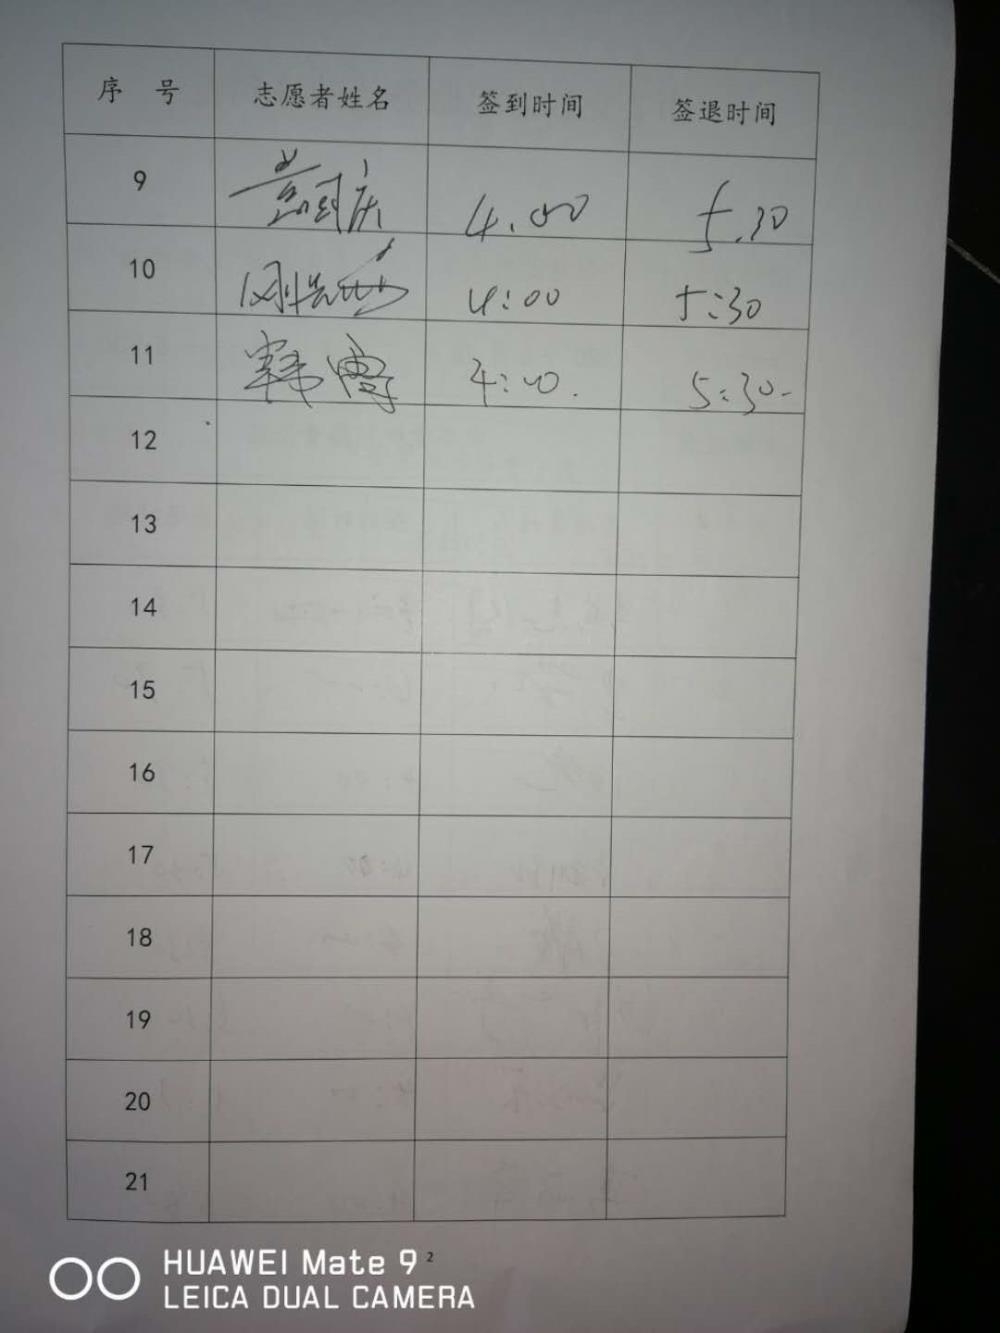 序 号 志愿者姓名 签到时间 签退时间
9 4.00 5.30
10 4:00 5:30
11 韩博 4:00. 5:30-
12
13
14
15
16
17
18
19
20
21
2
HUAWEI Mate 9
LEICA DUAL CAMERA